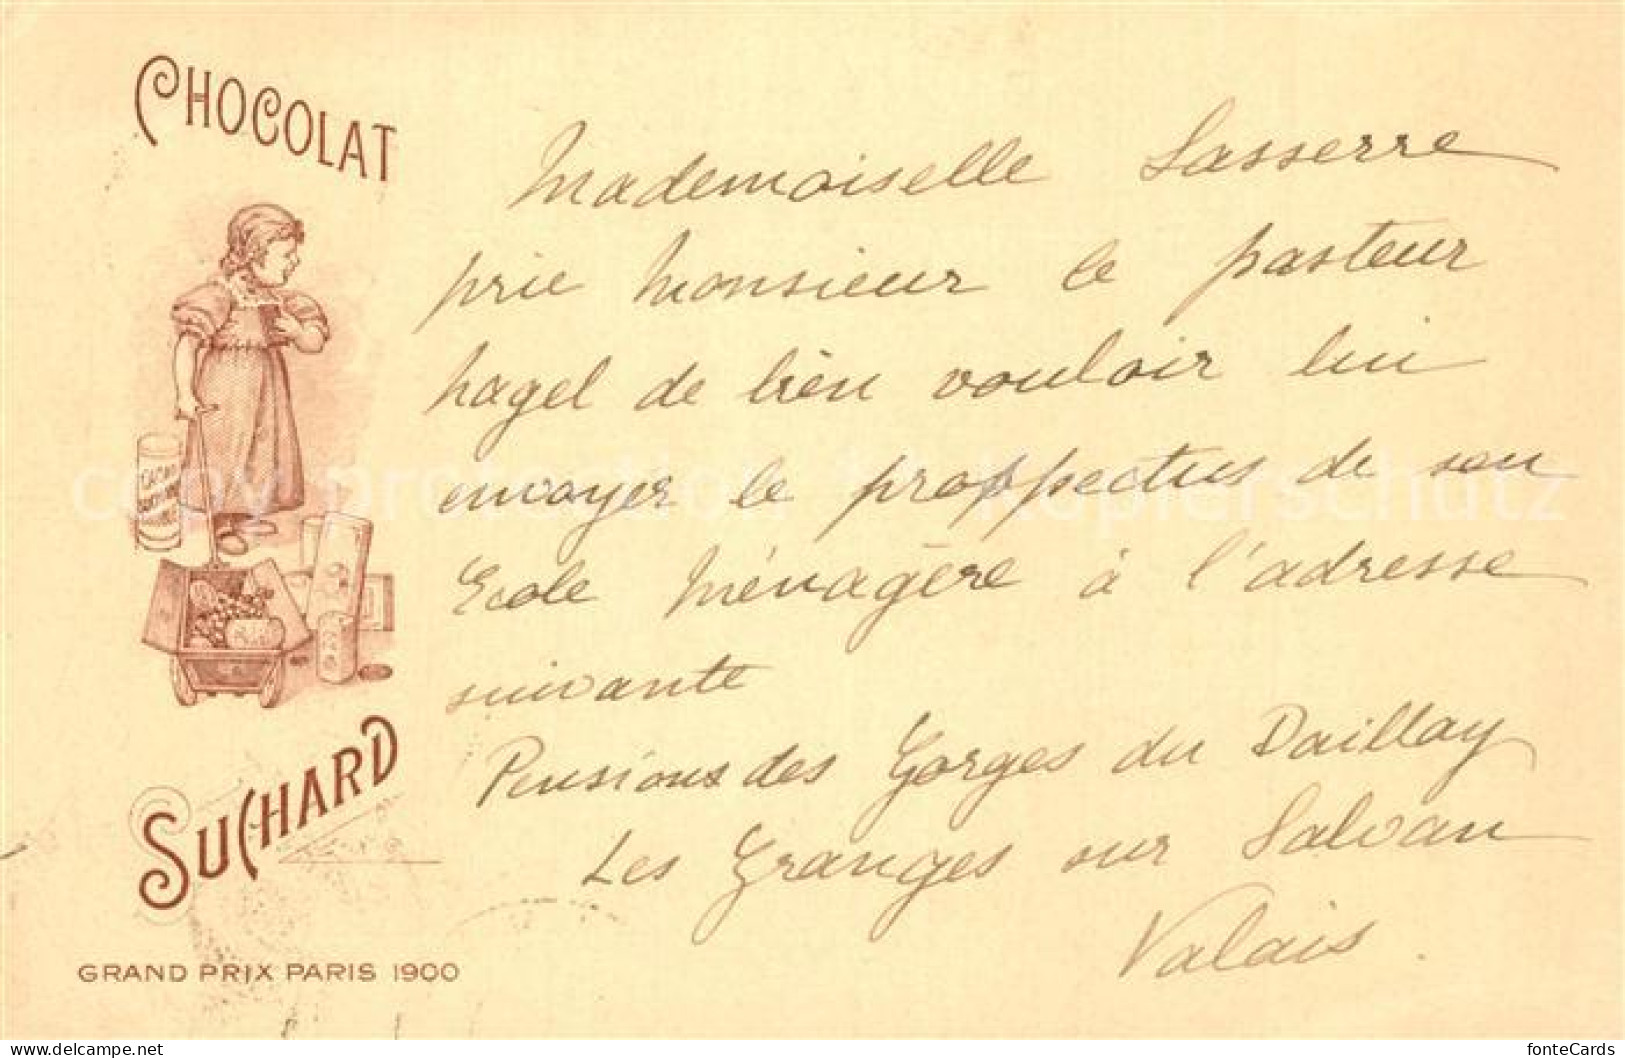 CHOCOLAT
Mademoiselle Lasserre
prie Monsieur le pasteur
hagel de bien vouloir lui
envoyer le proppectus de son
Ecole Ménagère à l'adresse
suivante
Pensions des Gorges du Daillay
Les Granges sur Salvan
Valais.
CACAO
SUCHARD
GRAND PRIX PARIS 1900
copy protection / Kopierschutz
https://www.delcampe.net
fonteCards